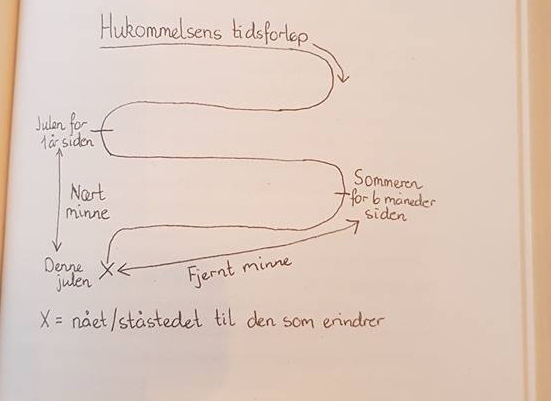 Hukommelsens tidsforløp
Julen for
1 år siden
Nært
minne
Sommeren
for 6 måneder
siden
Denne
julen
X
Fjernt minne
X = nået/ståstedet til den som erindrer